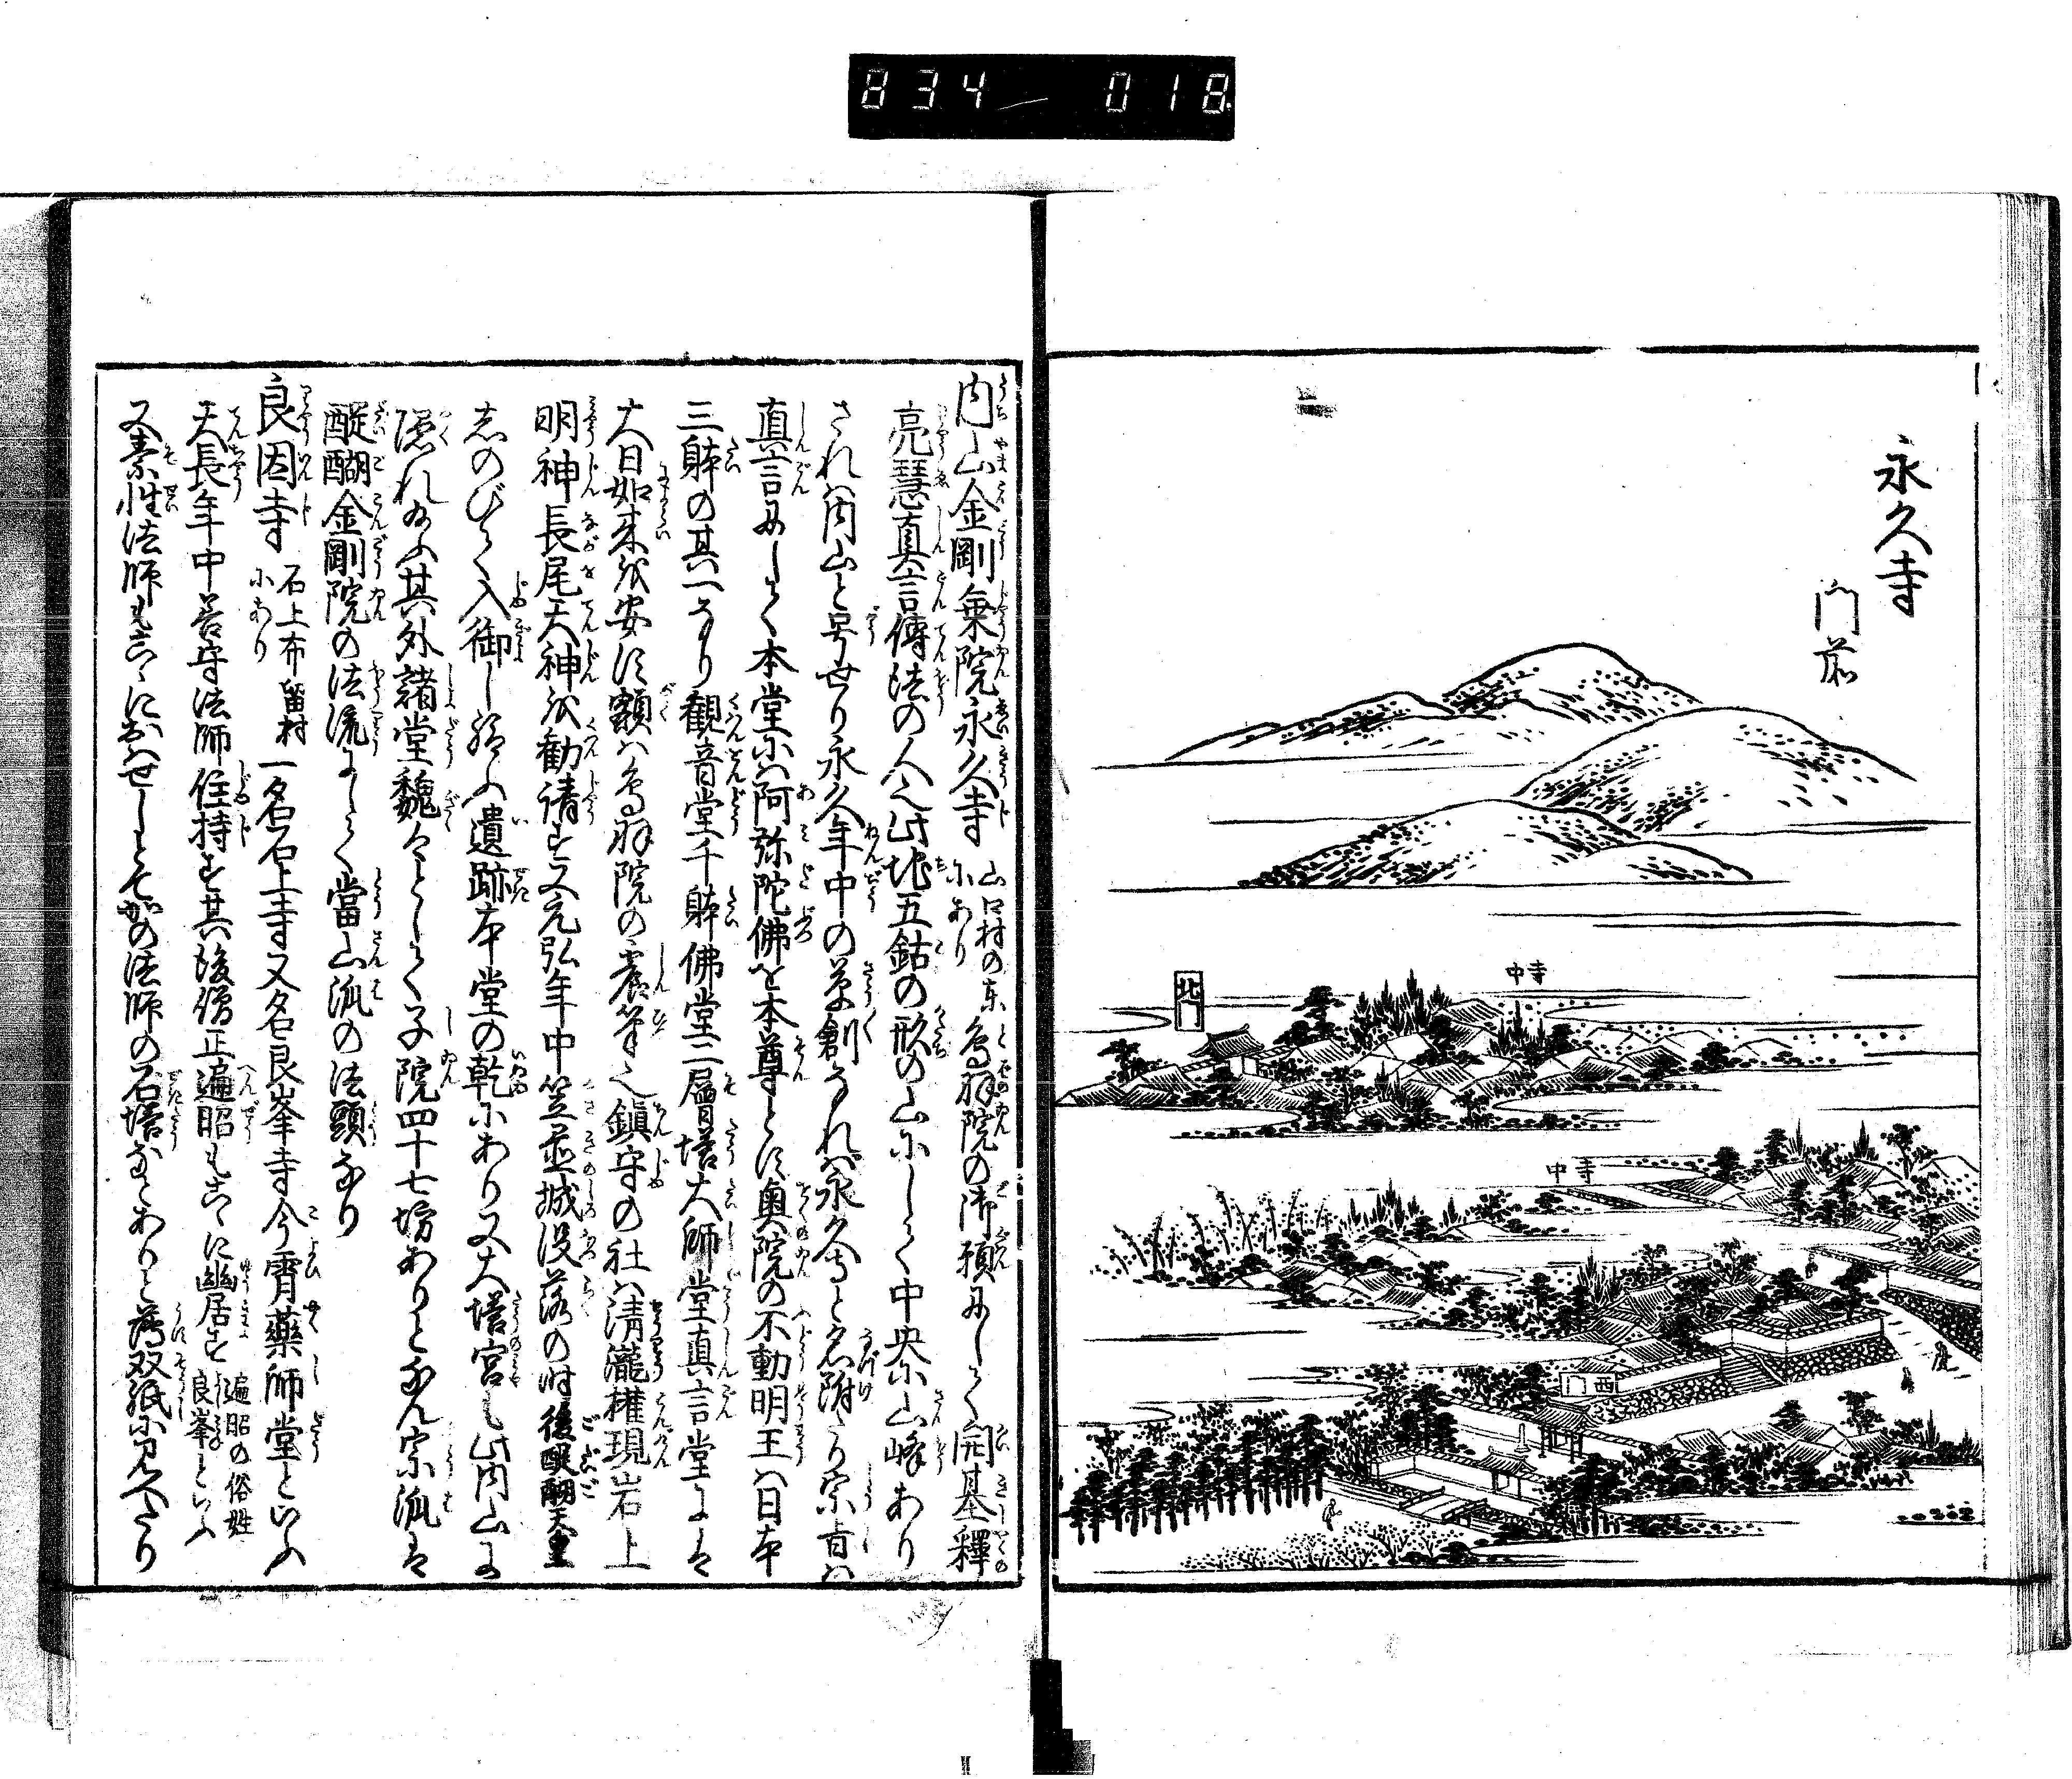 834 018
永久寺
門前
中寺
北門
中寺
西門
内山金剛乗院永久寺 山口村の東にあり 鳥羽院の御願にして開基釋
亮慧真言傳法の人也此地五鈷の形の山にして中央に山峰あり
されハ内山と号せり永久年中の草創なれば永久寺と名附たり宗旨ハ
真言にして本堂に阿弥陀佛を本尊とす奥院の不動明王ハ日本
三躰の其一なり観音堂千躰佛堂二層塔大師堂真言堂には
大日如来を安す額ハ鳥羽院の震筆也鎮守の社ハ清瀧権現岩上
明神長尾天神を勧請す又元弘年中笠置城没落の時後醍醐天皇
志のびて入御し給ふ遺跡本堂の乾にあり又大塔宮も此内山に
隠れ給ふ其外諸堂魏々として子院四十七坊ありとなん宗派は
醍醐金剛院の法流にして當山派の法頭なり
良因寺 石上布留村にあり 一名石上寺又名良峯寺今宵薬師堂といふ
天長年中善守法師住持す其後僧正遍昭もこゝに幽居す 遍昭の俗姓良峯といふ
又素性法師もこゝにおハせしとぞかの法師の石塔なとありと為双紙に見へたり